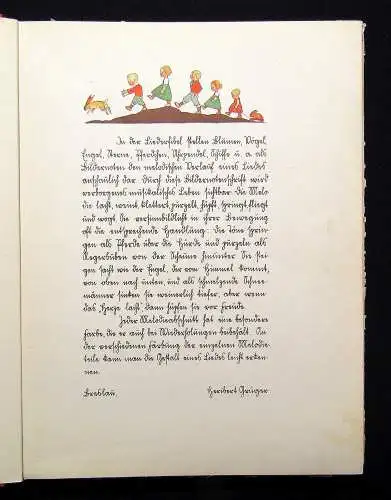 In der Liederfibel stellen Blumen, Vögel,
Engel, Sterne, Pferdchen, Uhrpendel, Schiffe u. a. als
Bildernoten den melodischen Verlauf eines Liedes
anschaulich dar. Durch diese Bildernotenschrift wird
verborgenes musikalisches Leben sichtbar: die Melo=
die lacht, weint, klettert, purzelt, hüpft, springt, fliegt
und wogt. Sie versinnbildlicht in ihrer Bewegung
oft die entsprechende Handlung: die Töne sprin=
gen als Pferde über die Hürde und purzeln als
Negerbuben von der Scheune herunter. Sie stei=
gen sacht wie der Engel, der vom Himmel kommt,
von oben nach unten, und als schmelzende Schnee=
männer sinken sie weinerlich tiefer, aber wenn
das „Herze lacht", dann hüpfen sie vor Freude.
Jeder Melodieabschnitt hat eine besondere
Farbe, die er auch bei Wiederholungen beibehält. An
der verschiedenen Färbung der einzelnen Melodie=
teile kann man die Gestalt eines Liedes leicht erken=
nen.
Breslau. Heribert Grüger